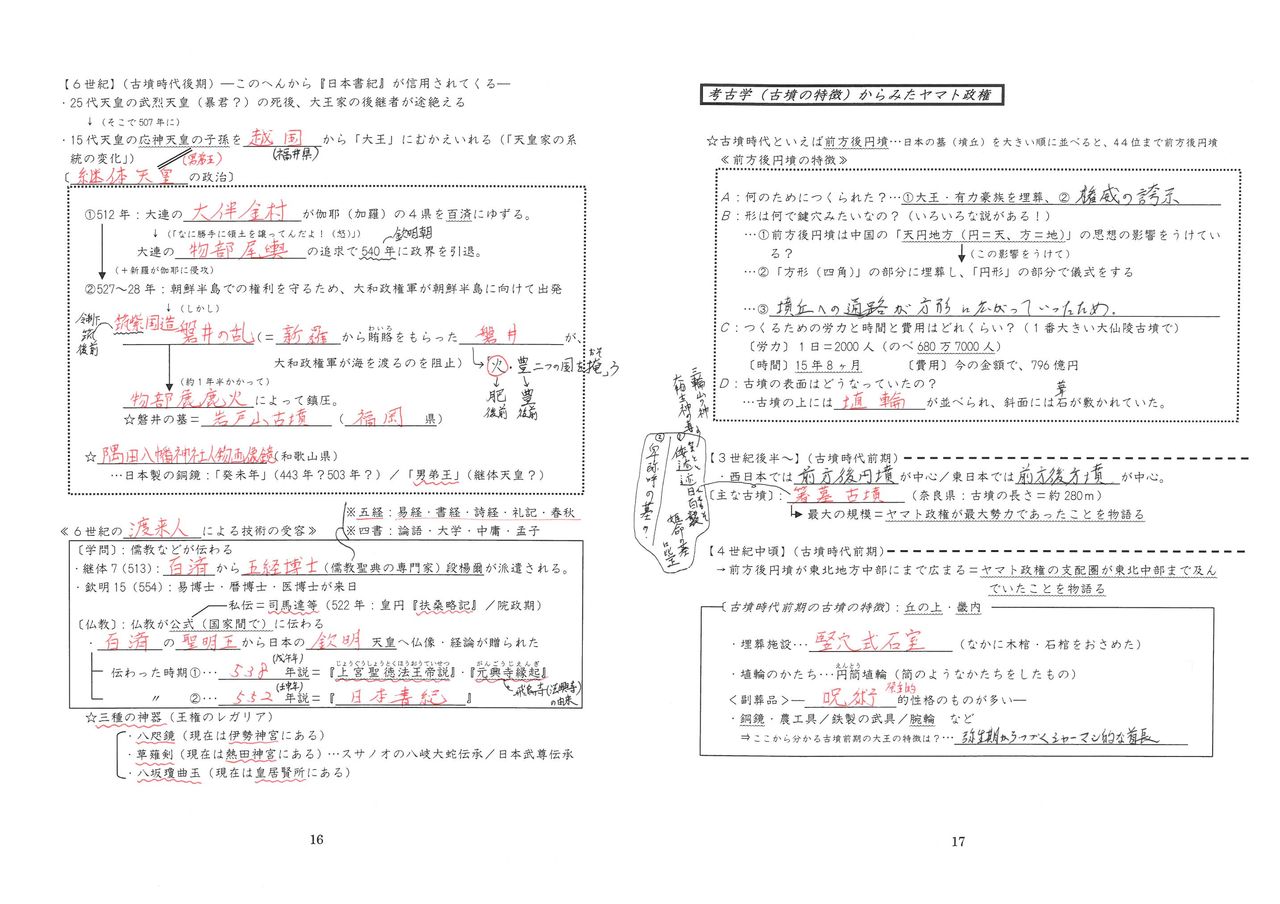 【6世紀】(古墳時代後期) ―このへんから『日本書紀』が信用されてくる―
・25代天皇の武烈天皇(暴君?)の死後、大王家の後継者が途絶える
↓(そこで507年に)
・15代天皇の応神天皇の子孫を 越国 から「大王」にむかえいれる(「天皇家の系
統の変化」) (男弟王) (福井県)
〔 継体天皇 の政治〕
①512年:大連の 大伴金村 が伽耶(加羅)の4県を百済にゆずる。
↓(「なに勝手に領土を譲ってんだよ!(怒)」) 欽明朝
大連の 物部尾輿 の追求で540年に政界を引退。
(+新羅が伽耶に侵攻)
②527~28年:朝鮮半島での権利を守るため、大和政権軍が朝鮮半島に向けて出発
↓(しかし)
筑紫国造磐井の乱(= 新羅 から賄賂をもらった 磐井 が、
わいろ
筑
後前
大和政権軍が海を渡るのを阻止) 火・豊二つの国を掩う
おそ
肥 豊
後前 後前
(約1年半かかって)
物部麁鹿火 によって鎮圧。
☆磐井の墓= 岩戸山古墳 ( 福岡 県)
☆ 隅田八幡神社人物画像鏡 (和歌山県)
…日本製の銅鏡:「癸未年」(443年?503年?)/「男弟王」(継体天皇?)
※五経:易経・書経・詩経・礼記・春秋
《6世紀の 渡来人 による技術の受容》 ※四書:論語・大学・中庸・孟子
〔学問〕:儒教などが伝わる
・継体7(513): 百済 から 五経博士 (儒教聖典の専門家)段楊爾が派遣される。
・欽明15(554):易博士・暦博士・医博士が来日
私伝=司馬達等(522年:皇円『扶桑略記』/院政期)
〔仏教〕:仏教が公式(国家間で)に伝わる
・ 百済 の 聖明王 から日本の 欽明 天皇へ仏像・経論が贈られた
(戊午年) じょうぐうしょうとくほうおうていせつ がんごうじえんぎ
伝わった時期①… 538 年説=『上宮聖徳法王帝説』・『元興寺縁起』
(壬申年) 飛鳥寺(法興寺)の由来
〃 ②… 552 年説=『 日本書紀 』
☆三種の神器(王権のレガリア)
・八咫鏡(現在は伊勢神宮にある)
・草薙剣(現在は熱田神宮にある)…スサノオの八岐大蛇伝承/日本武尊伝承
・八坂瓊曲玉(現在は皇居賢所にある)
16
考古学(古墳の特徴)からみたヤマト政権
☆古墳時代といえば前方後円墳…日本の墓(墳丘)を大きい順に並べると、44位まで前方後円墳
《前方後円墳の特徴》
A:何のためにつくられた?…①大王・有力豪族を埋葬、② 権威の誇示
B:形は何で鍵穴みたいなの?(いろいろな説がある!)
…①前方後円墳は中国の「天円地方(円=天、方=地)」の思想の影響をうけてい
る? ↓(この影響をうけて)
…②「方形(四角)」の部分に埋葬し、「円形」の部分で儀式をする
…③ 墳丘への通路が方形に広がっていったため.
C:つくるための労力と時間と費用はどれくらい?(1番大きい大仙陵古墳で)
〔労力〕1日=2000人(のべ680万7000人)
〔時間〕15年8ヶ月 〔費用〕今の金額で、796億円
D:古墳の表面はどうなっていたの?
葺
…古墳の上には 埴輪 が並べられ、斜面には石が敷かれていた。
三輪山の神
倭迹迹日百襲姫命の墓
②卑弥呼の墓?
【3世紀後半~】(古墳時代前期)
・西日本では 前方後円墳 が中心/東日本では 前方後方墳 が中心。
〔主な古墳〕: 箸墓古墳 (奈良県:古墳の長さ=約280m)
最大の規模=ヤマト政権が最大勢力であったことを物語る
【4世紀中頃】(古墳時代前期)
→前方後円墳が東北地方中部にまで広まる=ヤマト政権の支配圏が東北中部まで及ん
でいたことを物語る
〔古墳時代前期の古墳の特徴〕:丘の上・畿内
・埋葬施設… 竪穴式石室 (なかに木棺・石棺をおさめた)
えんとう
・埴輪のかたち…円筒埴輪(筒のようなかたちをしたもの)
<副葬品>― 呪術 的性格のものが多い―
・銅鏡・農工具/鉄製の武具/腕輪 など
⇒ここから分かる古墳前期の大王の特徴は?… 弥生期からつづくシャーマン的な首長
17